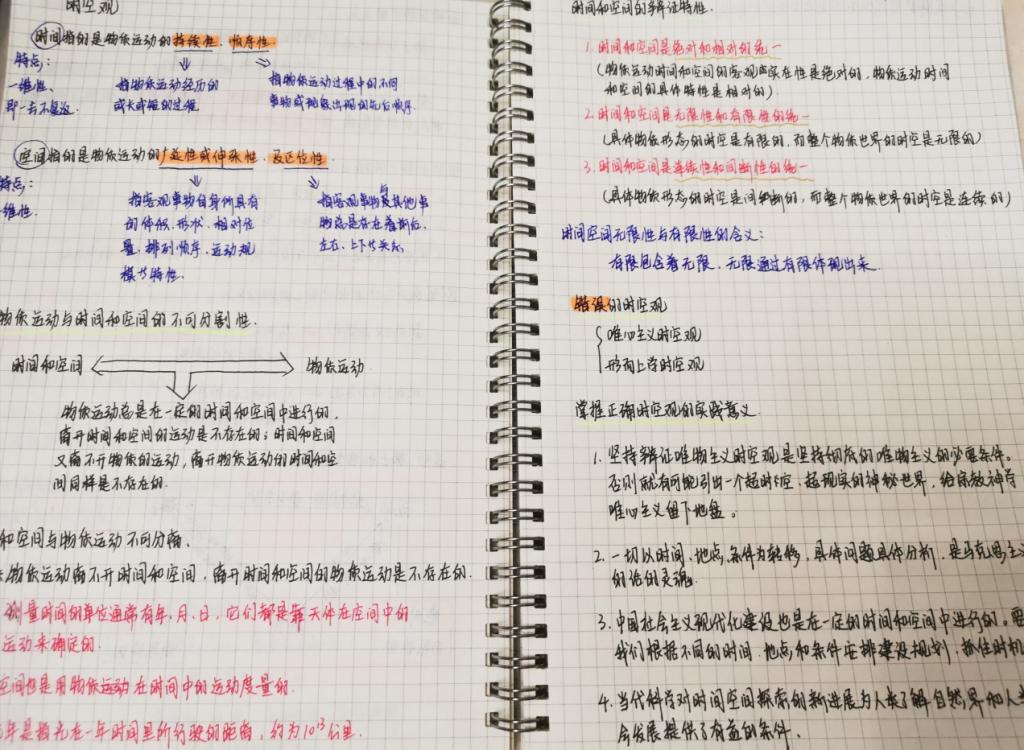 时空观
时间指的是物质运动的持续性、顺序性.
特点:
一维性、
即一去不复返.
指物质运动经历的
或长或短的过程
指物质运动过程中的不同
事物或种数出现的先后顺序
空间指的是物质运动的广延性或伸张性、及区位性
特点:
维性.
指客观事物自身所具有
的体积、形状、相对位
置、排列顺序、运动规
模等特性.
指客观事物与其他事
物总是存在着前后、
左右、上下等关系
物质运动与时间和空间的不可分割性.
时间和空间 物质运动
物质运动总是在一定的时间和空间中进行的,
离开时间和空间的运动是不存在的;时间和空间
又离不开物质的运动,离开物质运动的时间和空
间同样是不存在的.
和空间与物质运动不可分离、
物质运动离不开时间和空间,离开时间和空间的物质运动是不存在的.
测量时间的单位通常有年、月、日,它们都是靠天体在空间中的
运动来确定的.
空间也是用物质运动在时间中的运动度量的.
年是指光在一年时间里所行驶的距离,约为10¹³公里.
时间和空间的辩证特性.
1. 时间和空间是绝对和相对的统一
(物质运动时间和空间的客观实在性是绝对的,物质运动时间
和空间的具体特性是相对的)
2. 时间和空间是无限性和有限性的统一
(具体物质形态的时空是有限的,而整个物质世界的时空是无限的)
3. 时间和空间是连续性和间断性的统一
(具体物质形态的时空是间断的,而整个物质世界的时空是连续的)
时间空间无限性与有限性的含义:
有限包含着无限、无限通过有限体现出来.
错误的时空观
唯心主义时空观
形而上学时空观
掌握正确时空观的实践意义.
1. 坚持辩证唯物主义时空观是坚持彻底的唯物主义的必要条件。
否则就有可能引出一个超时空、超现实的神秘世界,给宗教神学
唯心主义留下地盘。
2. 一切以时间、地点、条件为转移,具体问题具体分析,是马克思主义
的活的灵魂.
3. 中国社会主义现代化建设也是在一定的时间和空间中进行的。要
我们根据不同的时间、地点和条件安排建设规划,抓住时机
4. 当代科学对时间空间探索的新进展为人类了解自然界和人类
会发展提供了有益的条件.